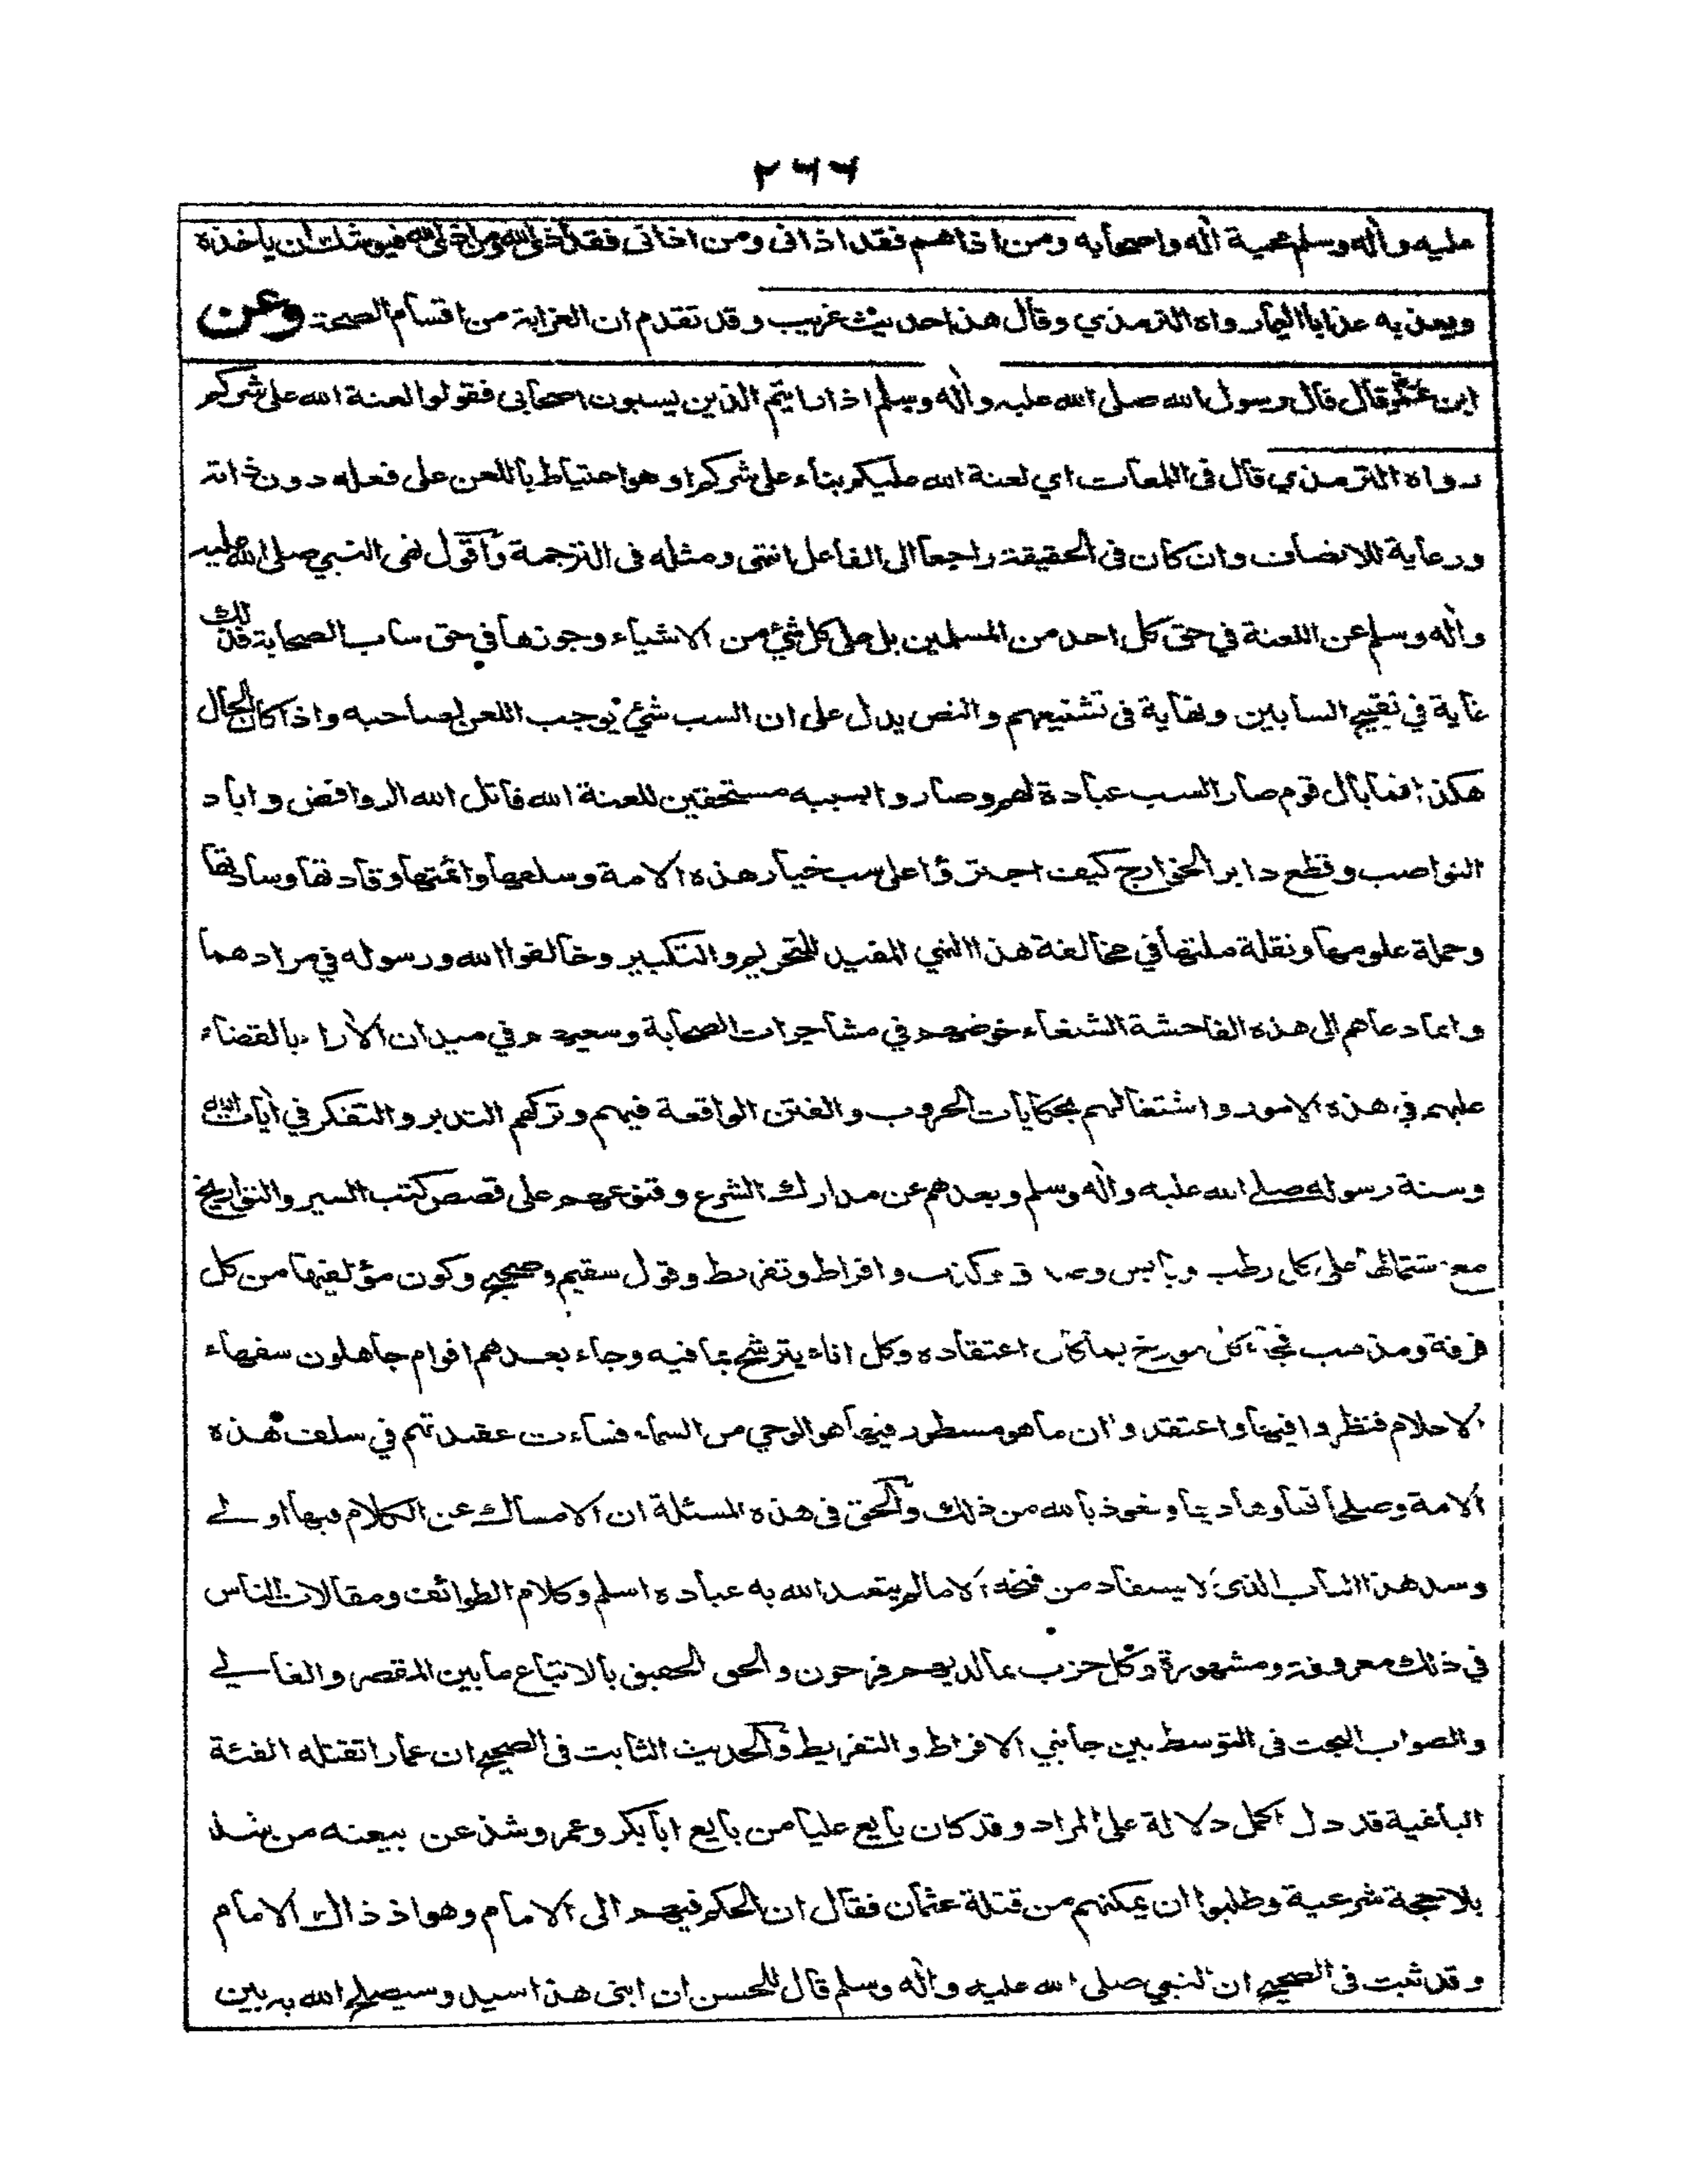 ٢٦٦
عليه وآله وسلم محبة آله واصحابه ومن اذاهم فقد اذانى ومن اذانى فقد اذى الله ومن اذى الله فيوشك ان ياخذه
ويعذبه عذابا اليما رواه الترمذي وقال هذا حديث غريب وقد تقدم ان الغرابة من اقسام الصحة وعن
ابن عمر قال قال رسول الله صلى الله عليه وآله وسلم اذا رايتم الذين يسبون اصحابى فقولوا لعنة الله على شركم
رواه الترمذي قال فى اللمعات اي لعنة الله عليكم بناء على شركم او هو احتياط باللعن على فعله دون ذاته
ورعاية للانصاف وان كان فى الحقيقة راجعا الى الفاعل انتهى ومثله فى الترجمة وأقول نهى النبي صلى الله عليه
وآله وسلم عن اللعنة في حق كل احد من المسلمين بل على كل شئ من الاشياء وجوزها في حق ساب الصحابة فذلك
غاية في تقبيح السابين ونهاية فى تشنيعهم والنص يدل على ان السب شئ يوجب اللعن لصاحبه واذا كان الحال
هكذا فما بال قوم صار السب عبادة لهم وصاروا بسببه مستحقين للعنة الله قاتل الله الروافض واباد
النواصب وقطع دابر الخوارج كيف اجترؤا على سب خيار هذه الامة وسلفها وائمتها وقادتها وسادتها
وحملة علومها ونقلة ملتها في مخالفة هذا النهي المفيد للتحريم والتكبير وخالفوا الله ورسوله في مرادهما
وانما دعاهم الى هذه الفاحشة الشنعاء خوضهم في مشاجرات الصحابة وسعيهم في ميدان الآراء بالقضاء
عليهم في هذه الامور واشتغالهم بحكايات الحروب والفتن الواقعة فيهم وتركهم التدبر والتفكر في آيات الله
وسنة رسوله صلى الله عليه وآله وسلم وبعدهم عن مدارك الشرع وقنوعهم على قصص كتب السير والتواريخ
مع اشتمالها على كل رطب ويابس وصدق وكذب وافراط وتفريط وقول سقيم وصحيح وكون مؤلفيها من كل
فرقة ومذهب فجاء كل مورخ بما كان اعتقاده وكل اناء يترشح بما فيه وجاء بعدهم اقوام جاهلون سفهاء
الاحلام فنظروا فيها واعتقدوا ان ما هو مسطور فيها هو الوحي من السماء فساءت عقيدتهم في سلف هذه
الامة وصلحائها وهاديها ونعوذ بالله من ذلك والحق فى هذه المسئلة ان الامساك عن الكلام فيها اولى
وسد هذا الباب الذى لا يستفاد من فتحه الا ما لم يتعبد الله به عباده اسلم وكلام الطوائف ومقالات الناس
في ذلك معروفة ومشهورة وكل حزب بما لديهم فرحون والحق الحقيق بالاتباع ما بين المقصر والغالي
والصواب البحت فى التوسط بين جانبي الافراط والتفريط والحديث الثابت فى الصحيح ان عمارا تقتله الفئة
الباغية قد دل اكمل دلالة على المراد وقد كان بايع عليا من بايع ابابكر وعمر وشذ عن بيعته من شذ
بلا حجة شرعية وطلبوا ان يمكنهم من قتلة عثمان فقال ان الحكم فيهم الى الامام وهو اذ ذاك الامام
وقد ثبت فى الصحيح ان النبي صلى الله عليه وآله وسلم قال للحسن ان ابنى هذا سيد وسيصلح الله به بين